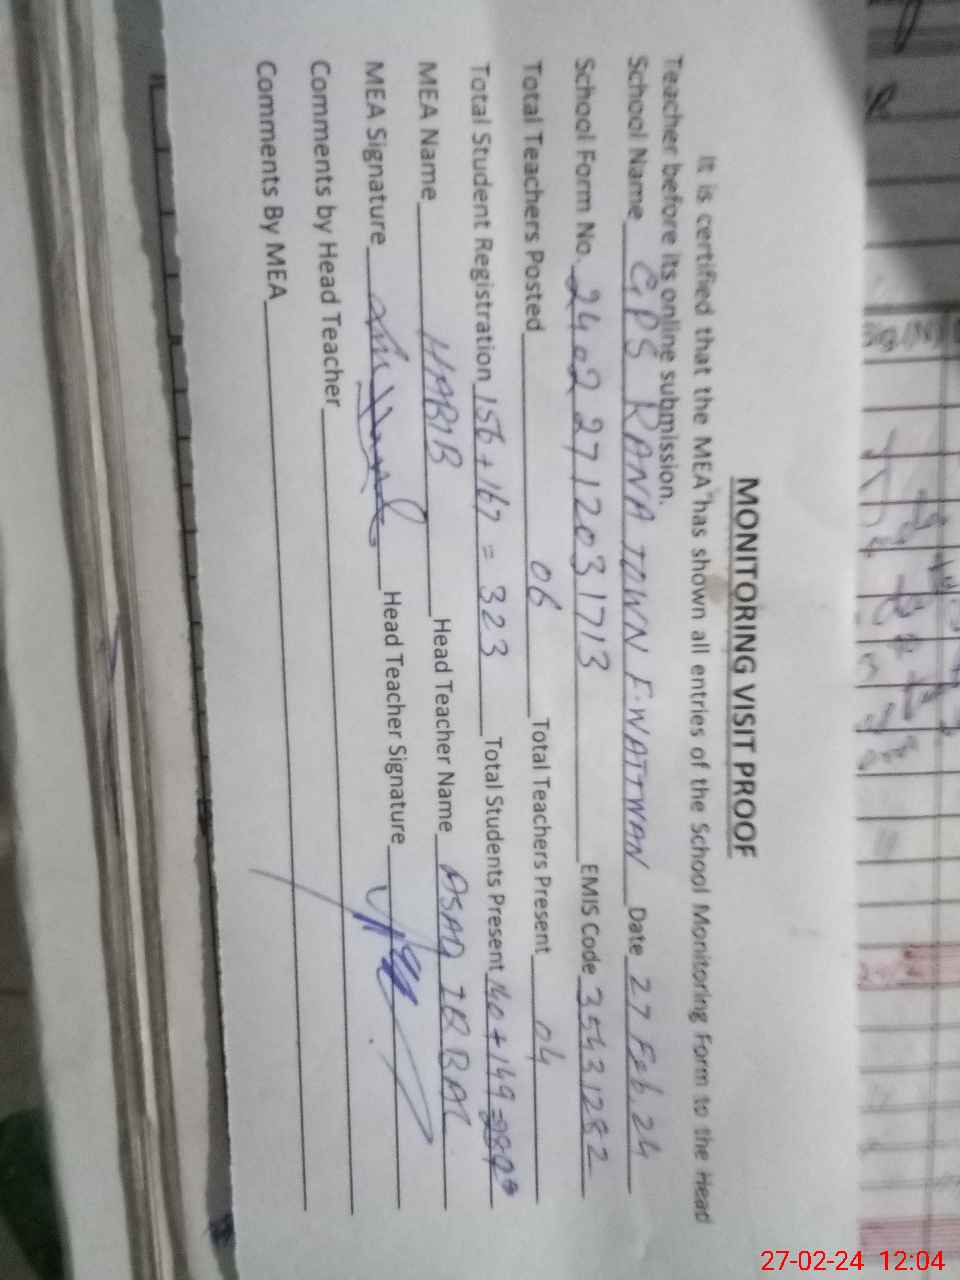 MONITORING VISIT PROOF
It is certified that the MEA has shown all entries of the School Monitoring Form to the Head
Teacher before its online submission.
School Name GPS RANA TOWN F.WATTWAN Date 27 Feb, 24
School Form No. 2402271203 1713 EMIS Code 35431282
Total Teachers Posted 06 Total Teachers Present 04
Total Student Registration 156+167 = 323 Total Students Present 140+149=289
MEA Name HABIB Head Teacher Name ASAD IQBAL
MEA Signature Head Teacher Signature
Comments by Head Teacher
Comments By MEA
27-02-24 12:04